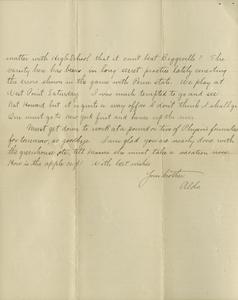 matter with High School that it can't beat Biggsville? The
varsity has been in long secret practice lately correcting
the errors shown in the game with Penn State. We play at
West Point Saturday. I was much tempted to go and see
but it is quite a way off so I don't think I shall go
One must go to New York first and then up the river
Must get down to work at a pound or two of Physics formulas
for tomorrow, so goodbye. I am glad you are nearly done with
the greenhouse etc, tell mamma she must take a vacation now.
How is the apple crop? With best wishes
Your brother
Aldo